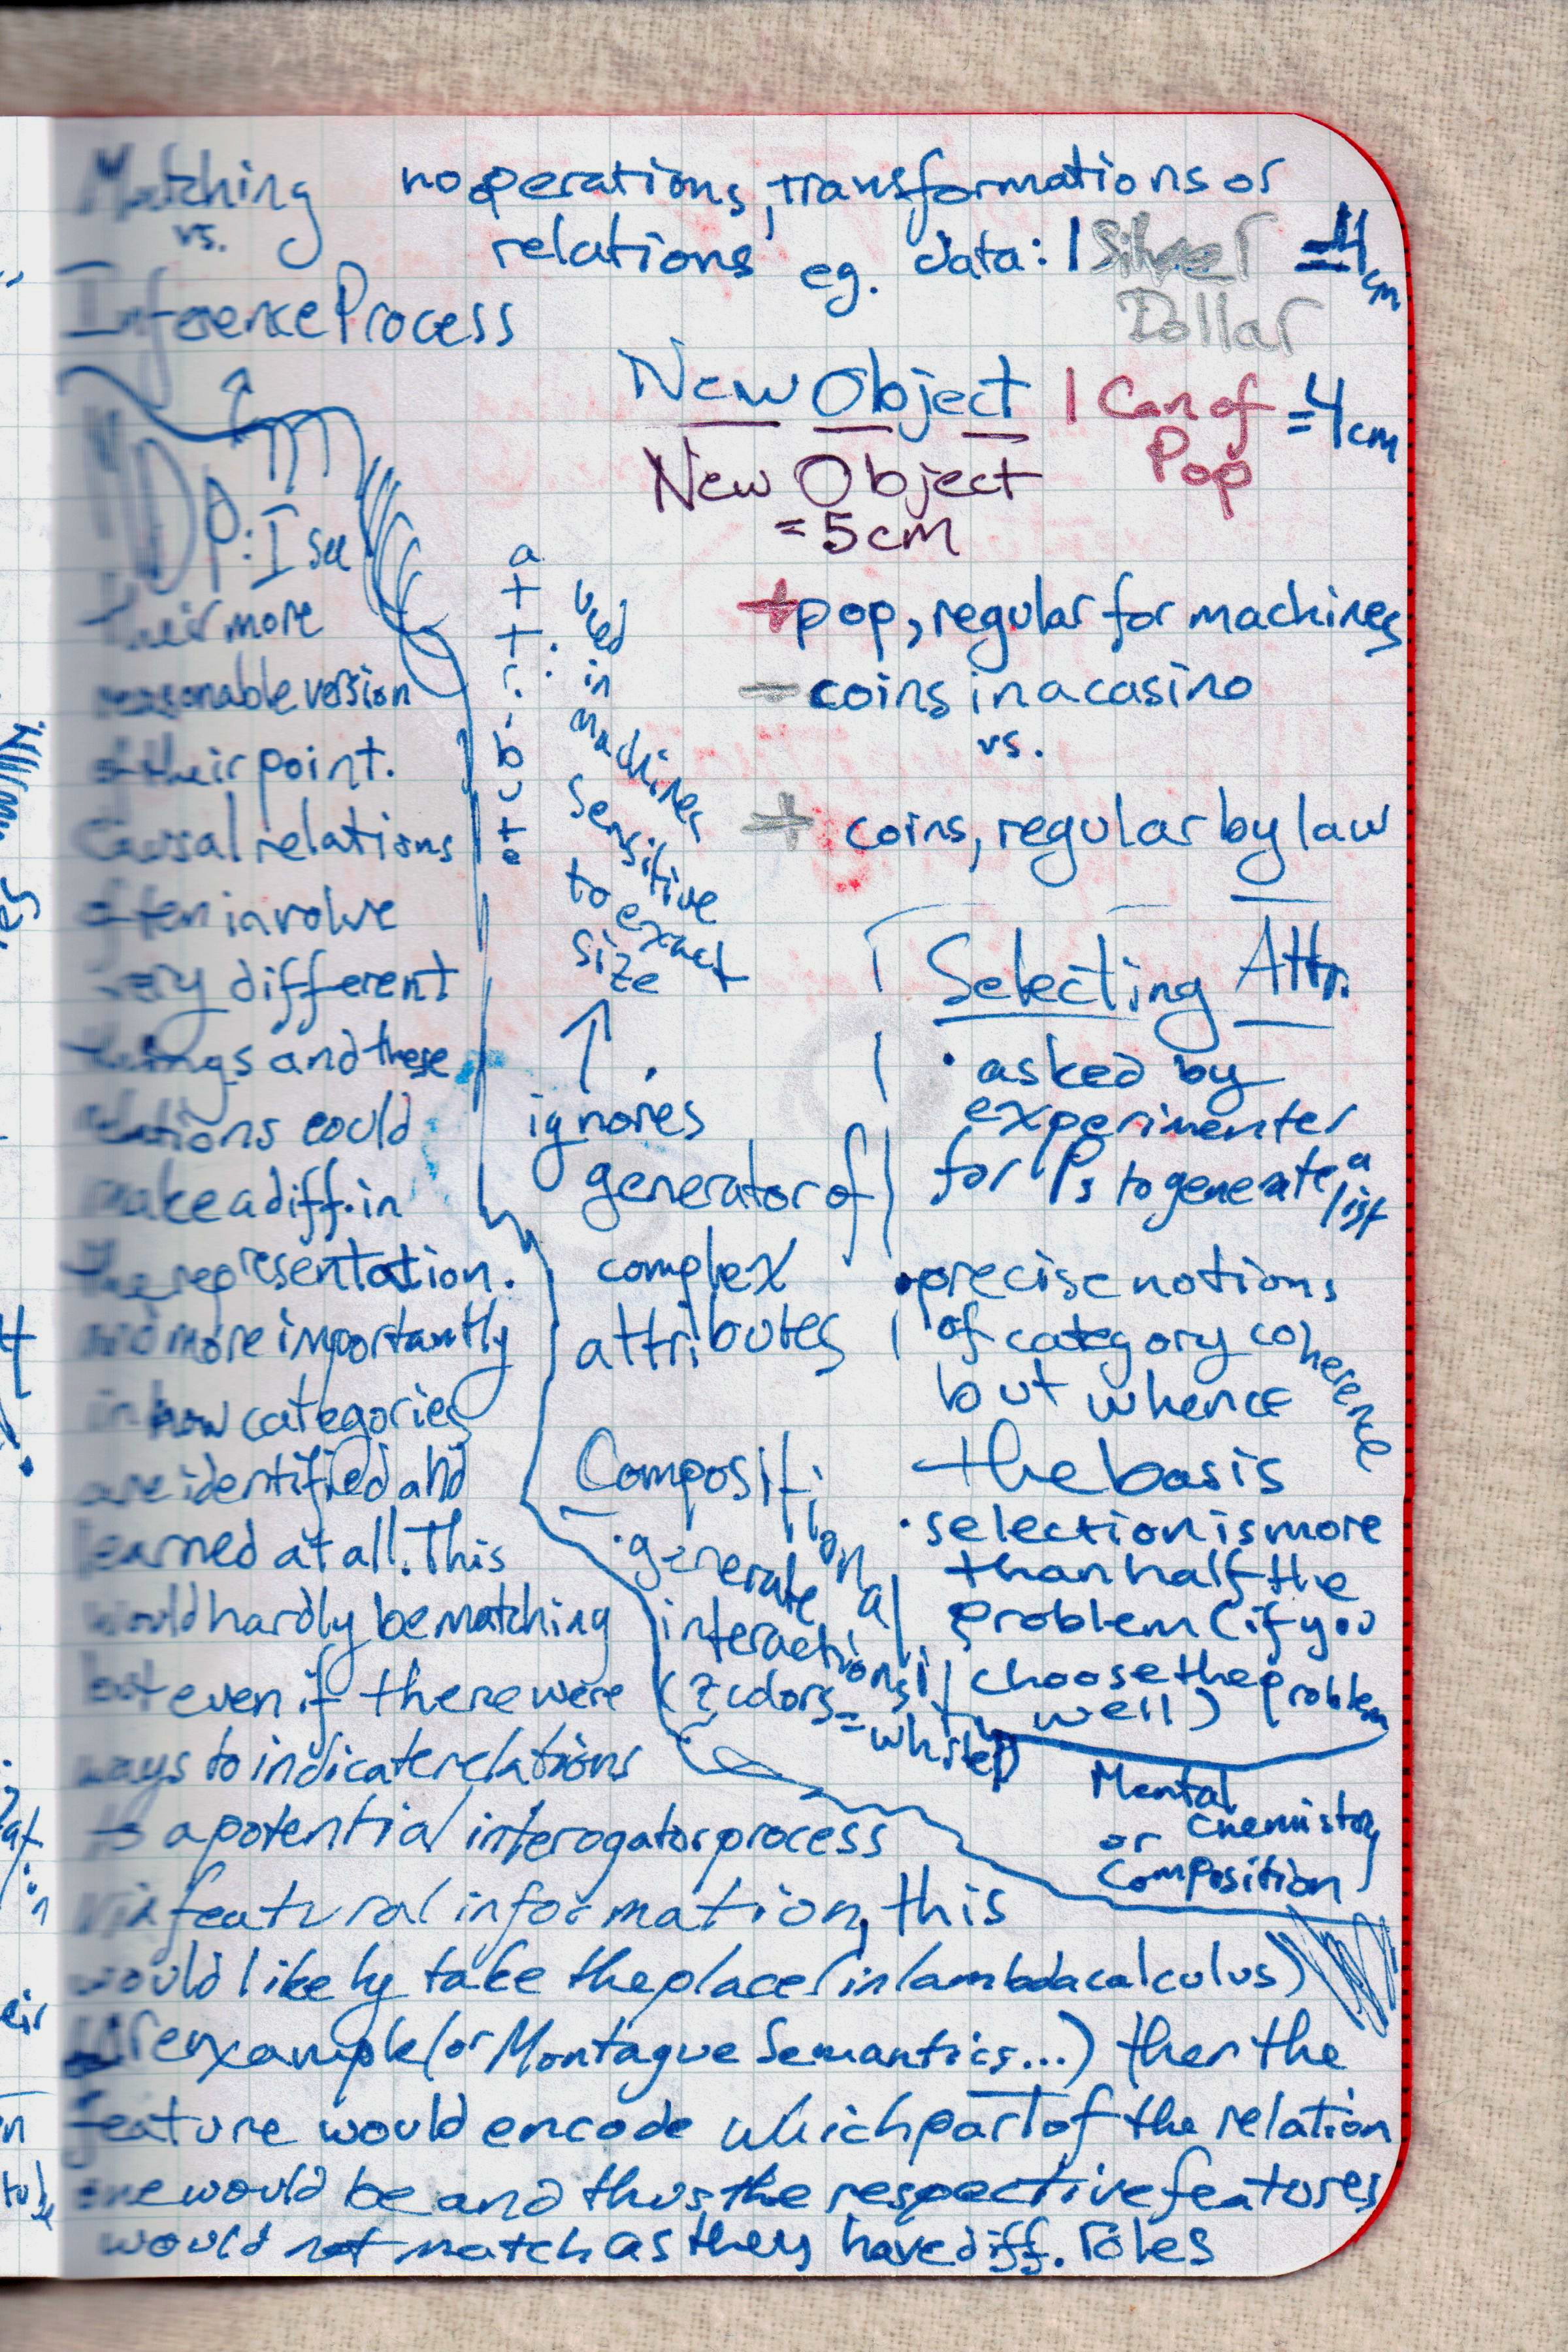 Matching
vs.
Inference Process
no operations, transformations or
relations eg. data: 1 Silver = 4 cm
Dollar
New Object 1 Can of = 4 cm
Pop
New Object
= 5cm
+ pop, regular for machines
- coins in a casino
vs.
+ coins, regular by law
attribute:
used
in
machines
sensitive
to exact
size
↑
ignores
generator of
complex
attributes
Compositional
• generate
interactions
(2 colors
= whites)
Selecting Attr.
• asked by
experimenter
for Ps to generate a
list
• precise notions
of category coherence
but whence
the basis
• selection is more
than half the
problem (if you
choose the problem
well)
Mental
Chemistry
or
Composition
DP: I see
their more
reasonable version
of their point.
Causal relations
often involve
very different
things and these
relations could
make a diff. in
the representation.
and more importantly
in how categories
are identified and
learned at all. This
would hardly be matching
but even if there were
ways to indicate relations
to a potential interogator process
via featural information, this
would likely take the place (in lambda calculus)
for enxample (or Montague Semantics...) then the
feature would encode which part of the relation
one would be and thus the respective features
would not match as they have diff. roles